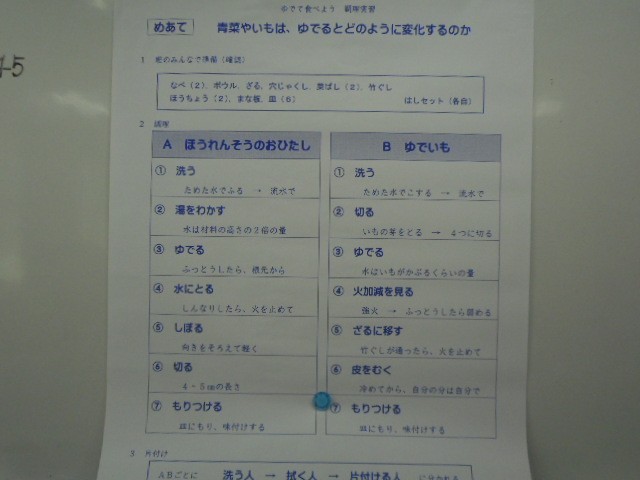 4-5
ゆでて食べよう 調理実習
めあて 青菜やいもは、ゆでるとどのように変化するのか
1 班のみんなで準備（確認）
なべ（2）、ボウル、ざる、穴じゃくし、菜ばし（2）、竹ぐし
ほうちょう（2）、まな板、皿（6） はしセット（各自）
2 調理
A ほうれんそうのおひたし
① 洗う
ためた水でふる → 流水で
② 湯をわかす
水は材料の高さの2倍の量
③ ゆでる
ふっとうしたら、根元から
④ 水にとる
しんなりしたら、火を止めて
⑤ しぼる
向きをそろえて軽く
⑥ 切る
4-5㎝の長さ
⑦ もりつける
皿にもり、味付けする
B ゆでいも
① 洗う
ためた水でこする → 流水で
② 切る
いもの芽をとる → 4つに切る
③ ゆでる
水はいもがかぶるくらいの量
④ 火加減を見る
強火 → ふっとうしたら弱める
⑤ ざるに移す
竹ぐしが通ったら、火を止めて
⑥ 皮をむく
冷めてから、自分の分は自分で
⑦ もりつける
皿にもり、味付けする
3 片付け
ABごとに 洗う人 → 拭く人 → 片付ける人 に分かれる